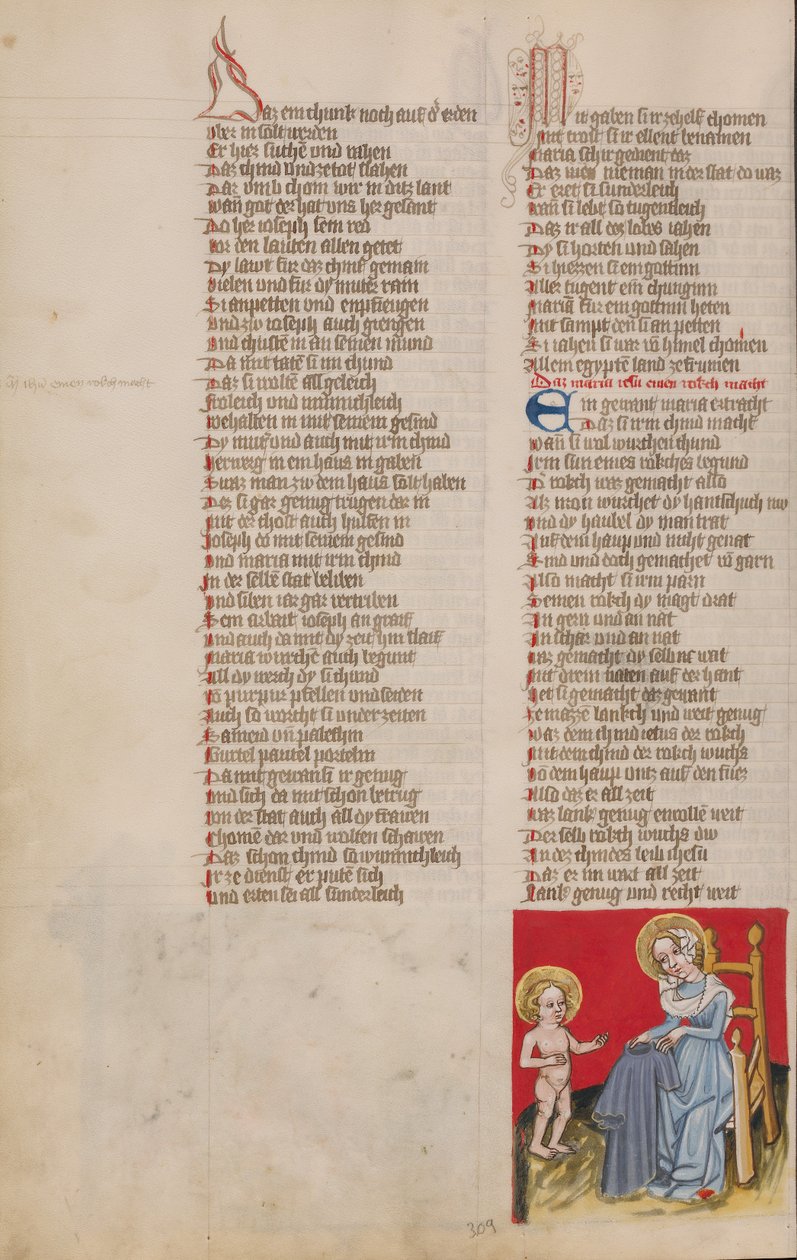 Daz ein chunk noch auf d' erden
Vber in solt werden
Er hiez suchē vnd vahen
Daz chind vnd ze tot slahen
Daz vmb chom wir in ditz lant
Wan got der hat vns her gesant
Do her ioseph sein red
Vor den lauten allen getet
Dy lawt fur daz chint gemain
Vielen vnd fur dy muter rain
Si anpetten vnd enpfiengen
Vnd zw ioseph auch giengen
Vnd chustē in an seinen mund
Da mit tatē si im chund
Daz si woltē all geleich
Froleich vnd minnichleich
Wehalten in mit seinem gesind
Dy mut' vnd auch mit irm chind
Herwerg in ein haus in gabeñ
Swaz man zw dem haus solt haben
Dez si gar genug trugen dar in
Mit der chost auch hulfen in
Joseph do mit seinem gesind
Vnd maria mit irm chind
In der selbē stat beliben
Vnd siben iar gar vertriben
Sein arbait ioseph an graif
Vnd auch da mit dy zeit hin slaif
Maria wurchē auch begunt
All dy werch dy si chund
Vō purpur pfellen vnd seiden
Auch so worcht si vnder zeiten
Gurtel pautel portelin
Da mit gewan si ir genug
Vnd sich da mit schon betrug
Von der stat auch all dy frawen
Chomē dar vnd wolten schawen
Daz schon chind so wunnichleich
Ir ze dienst er putē sich
Vnd erten sei all sunderleich
Mit gaben si ir ze helf chomen
Mit trost si ir ellent benamen
Maria sch ir gedient daz
Daz nieman in der stat do waz
Er eret si sunderleich
Wan si lebt so tugentleich
Daz ir all dez lobes iahen
Dy si horten vnd sahen
Si hiezzen si ein gottinn
Aller tugent ein chunginn
Mariā fur ein gottinn heten
Mit sampt deñ si an petten
Si iahen si war vō himel chomen
Allem egyptē land ze frumen
Daz maria iesu einen rokch macht
Ein gewant maria ertracht
Daz si irm chind macht
Wan si wol wurchen chund
Irm sun eines rokches begund
D' rokch waz gemacht also
Als man wurchet dy hantschuch nw
Vnd dy haubel dy man trat
Auf dem haup vnd nicht genat
Sind vnd doch gemachet vō garn
Also macht si irm parn
Seinen rokch dy magt drat
An gern vnd an nat
An schar vnd an nat
Waz gemacht dy selbne wat
Mit drein naten auf der hant
Het si gemacht daz gewant
Ze mazzē lankch vnd weit genug
Waz dem chind iesus der rokch
Mit dem chind der rokch wuchs
Vō dem haup vntz auf den fuez
Also daz er all zeit
Waz lank genug envollē weit
Der selb rokch wuchs dw
An dez chindes leib ihesu
Daz er im wart all zeit
Lank genug vnd recht weit
309